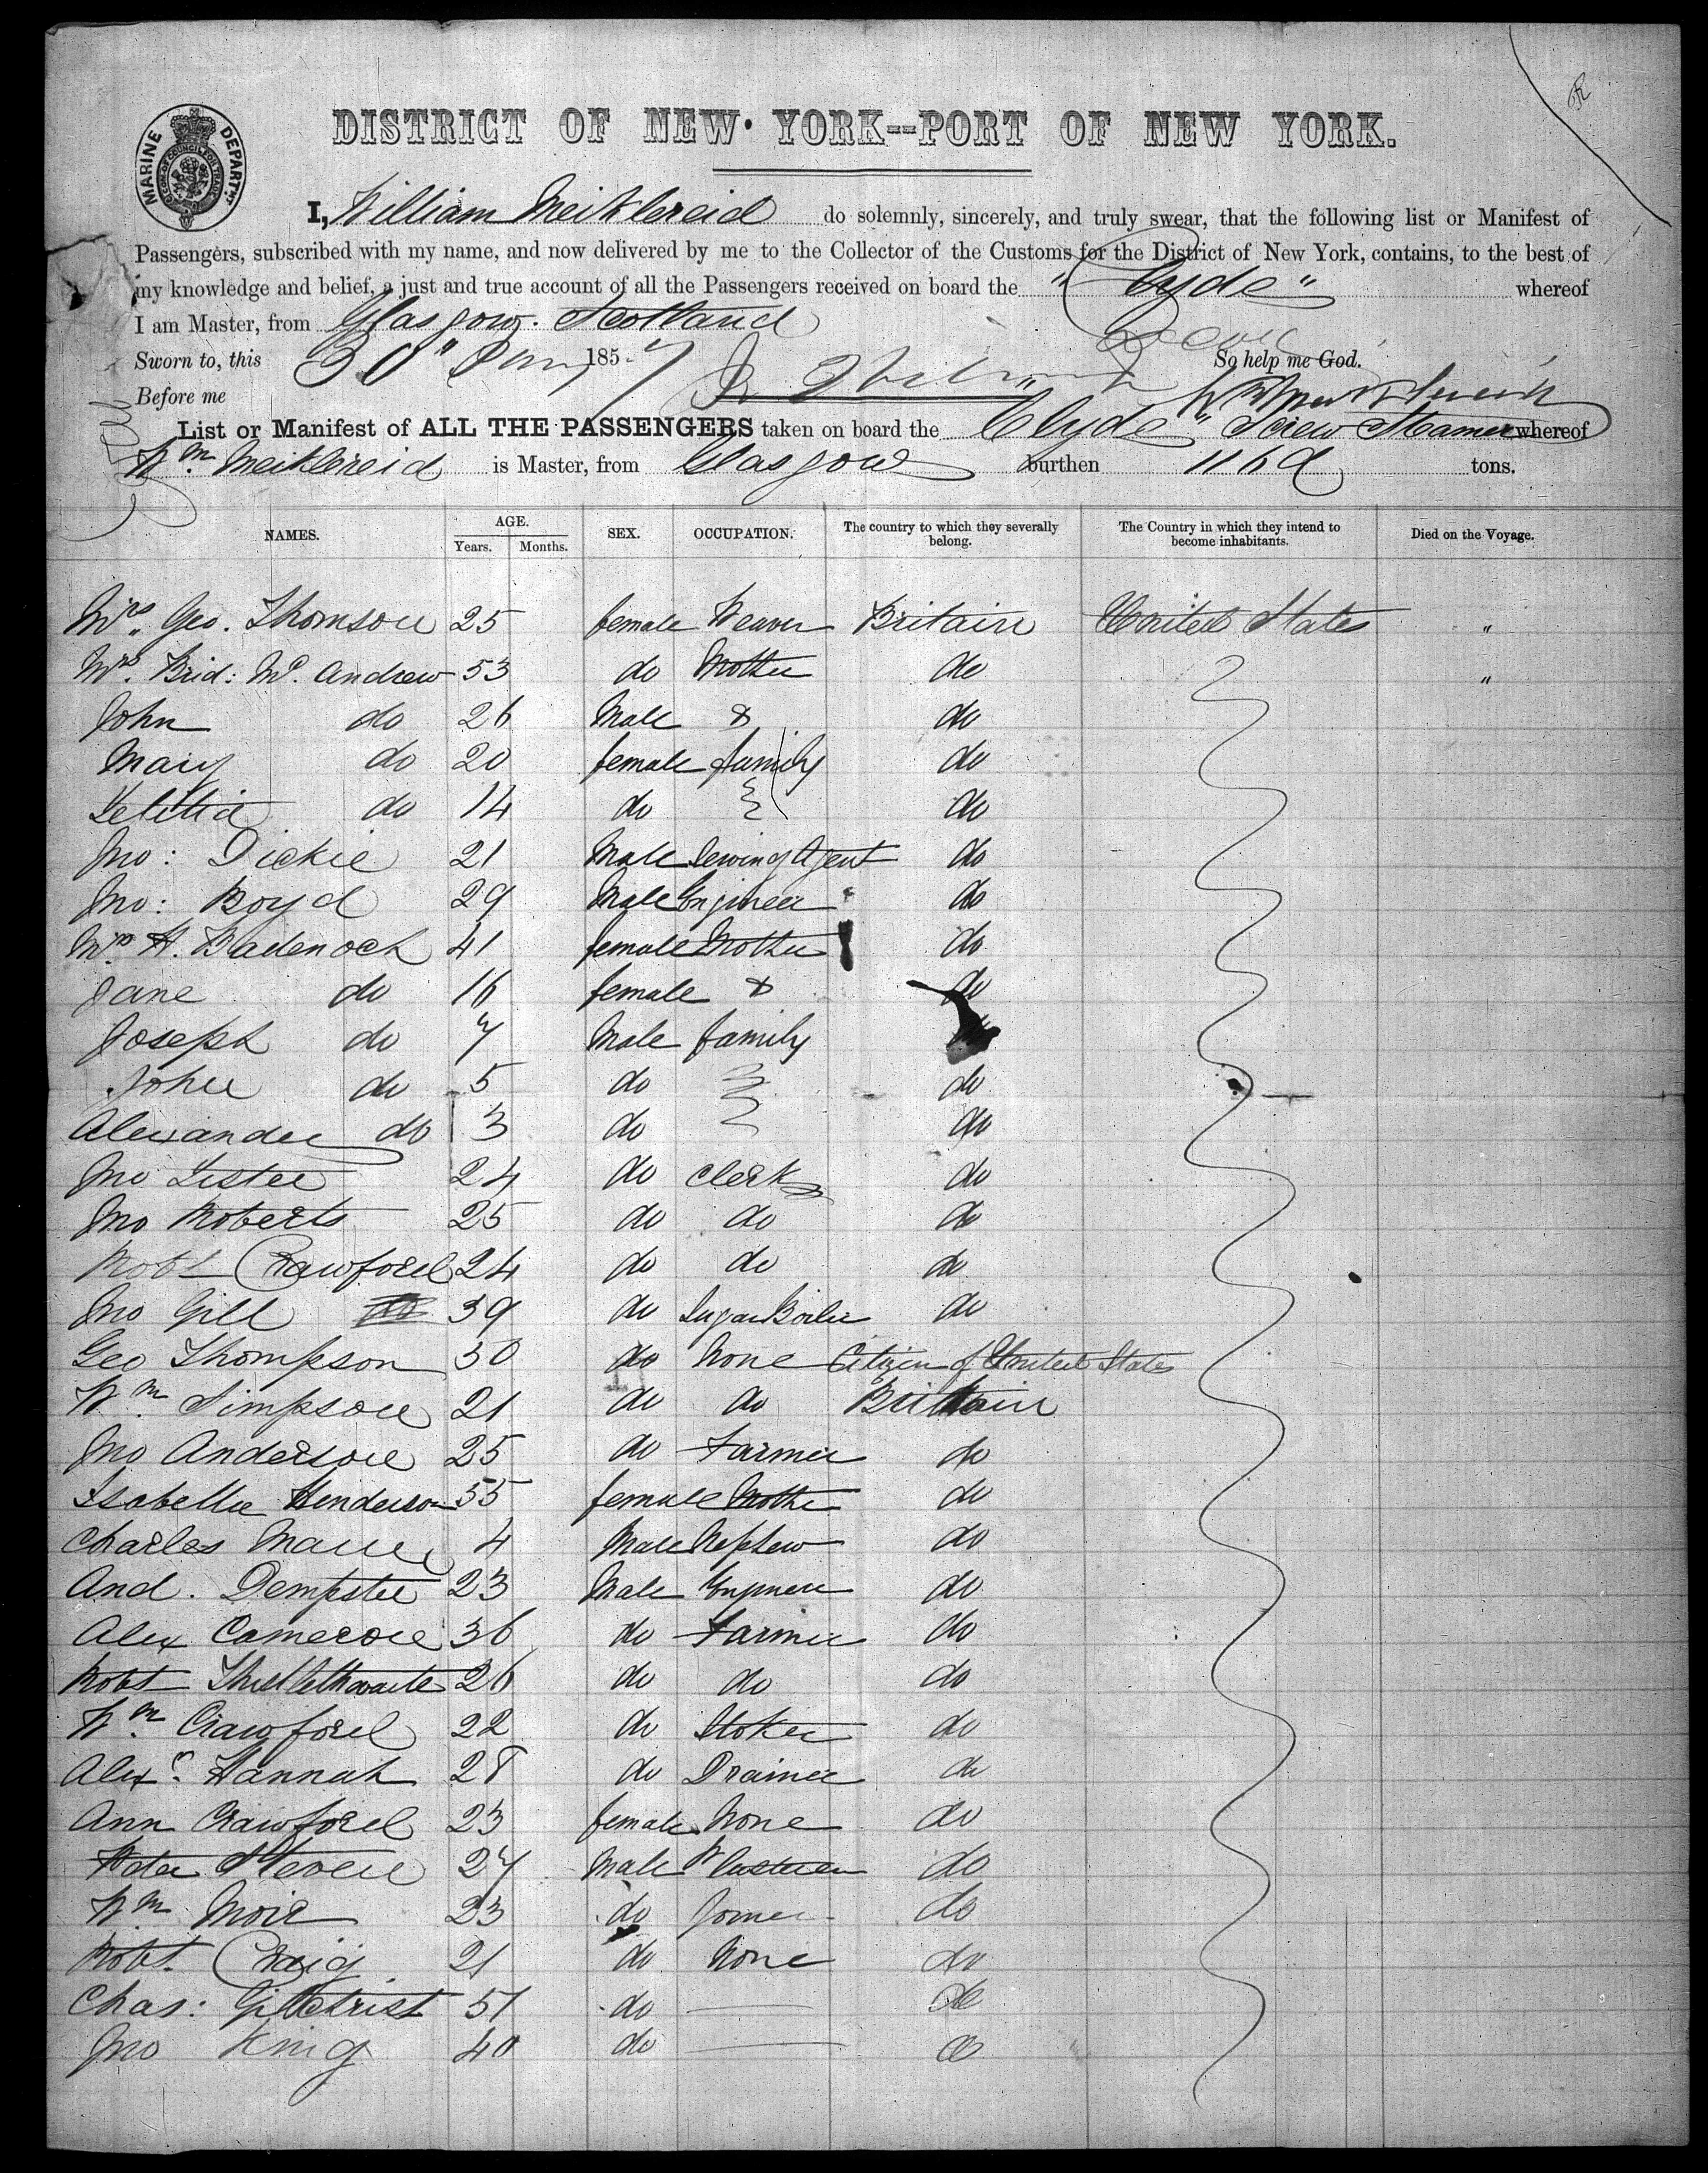 DISTRICT OF NEW YORK--PORT OF NEW YORK.
MARINE DEPARTMT
I, William Meiklereid do solemnly, sincerely, and truly swear, that the following list or Manifest of
Passengers, subscribed with my name, and now delivered by me to the Collector of the Customs for the District of New York, contains, to the best of
my knowledge and belief, a just and true account of all the Passengers received on board the "Clyde" whereof
I am Master, from Glasgow. Scotland
Sworn to, this 30" Jany 1857 So help me God.
Before me
List or Manifest of ALL THE PASSENGERS taken on board the "Clyde" Screw Steamer whereof
Wm. Meiklereid is Master, from Glasgow burthen 1169 tons.
NAMES. AGE. Years. Months. SEX. OCCUPATION. The country to which they severally belong. The Country in which they intend to become inhabitants. Died on the Voyage.
Mrs. Geo. Thomson 25 female Weaver Britain United States "
Mrs. Brid: Mc. Andrew 53 do Mother do "
John do 26 Male & do
Mary do 20 female family do
Letitia do 14 do do
Jno: Dickie 21 Male Sewing Agent do
Jno: Boyd 29 Male Engineer do
Mrs A. Badenoch 41 female Mother do
Jane do 16 female & do
Joseph do 7 Male family
John do 5 do do
Alexander do 3 do do
Jno Lister 24 do Clerk do
Jno Roberts 25 do do do
Robt Crawford 24 do do do
Jno Gill 39 do Sugar Boiler do
Geo Thompson 30 do None Citizen of United States
Wm Simpson 21 do do Britain
Jno Anderson 25 do Farmer do
Isabella Henderson 55 female Mother do
Charles 4 Male Nephew do
And. Dempster 23 Male Engineer do
Alex Cameron 36 do Farmer do
Robt Thistlethwaite 26 do do do
Wm Crawford 22 do Stoker do
Alexr. Hannah 28 do Drainer do
Ann Crawford 23 female None do
Peter Steven 27 Male do
Wm Moir 23 do Joiner do
Robt. Craig 21 do None do
Chas: Gilchrist 51 do — do
Jno King 40 do — do